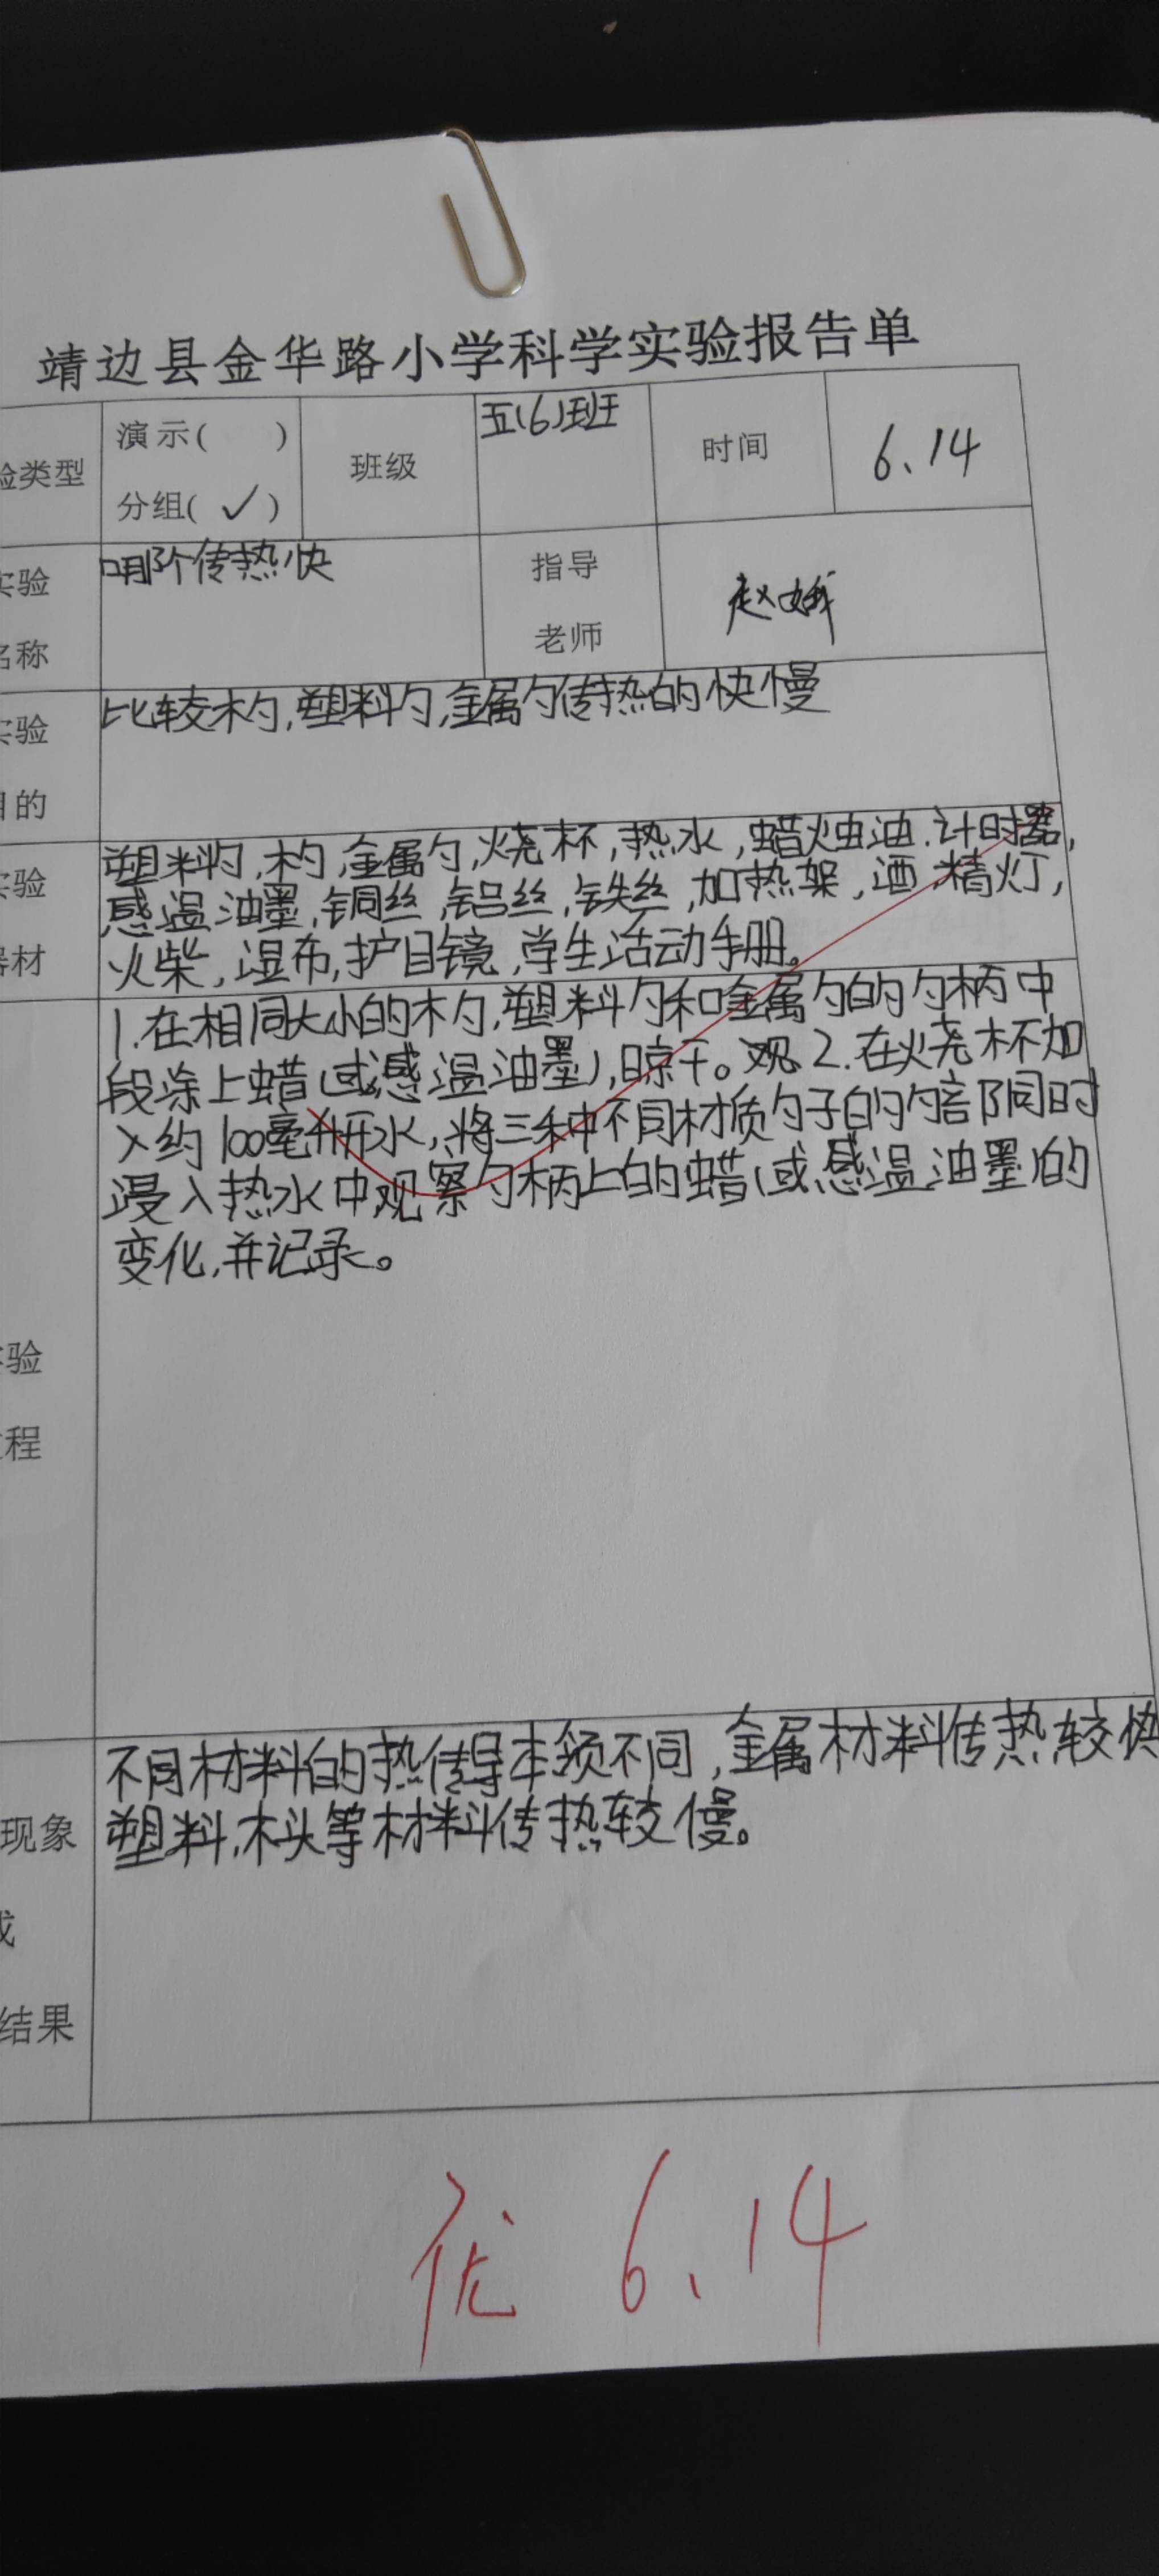 靖边县金华路小学科学实验报告单
验类型 演示( ) 班级 五(6)班 时间 6.14
分组(✓)
实验 哪个传热快 指导 赵娥
名称 老师
实验 比较木勺,塑料勺,金属勺传热的快慢
目的
实验 塑料勺,木勺,金属勺,烧杯,热水,蜡烛油.计时器,
器材 感温油墨,铜丝,铝丝,铁丝,加热架,酒精灯,
火柴,湿布,护目镜,学生活动手册。
1.在相同大小的木勺,塑料勺和金属勺的勺柄中
段涂上蜡(或感温油墨),晾干。观 2.在烧杯加
入约100毫升开水,将三种不同材质勺子的勺部同时
浸入热水中观察勺柄上的蜡(或感温油墨)的
变化,并记录。
实验
过程
不同材料的热传导本领不同,金属材料传热较快
现象 塑料,木头等材料传热较慢。
或
结果
优 6.14